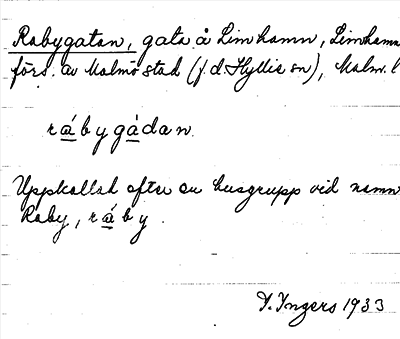 Rabygatan, gata å Limhamn, Limhamns
förs. av Malmö stad (f.d. Hyllie sn), Malm. l
ráb y gádan.
Uppkallad efter en husgrupp vid namn
Raby, ráb y.
I. Ingers 1933